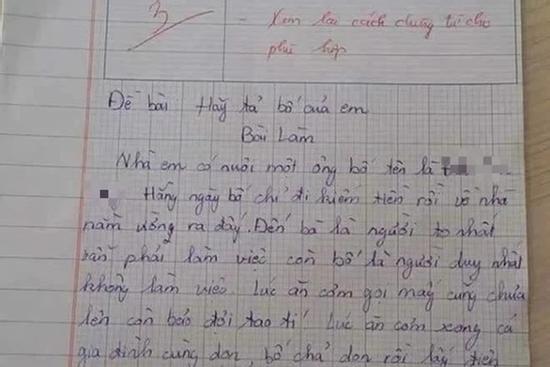 3
- Xem lại cách dùng từ cho
phù hợp
Đề bài Hãy tả bố của em
Bài làm
Nhà em có nuôi một ông bố tên là
Hằng ngày bố chỉ đi kiếm tiền rồi về nhà
nằm ưỡng ra đấy. Đến bà là người to nhất
vẫn phải làm việc còn bố là người duy nhất
không làm việc. Lúc ăn cơm gọi mãi cũng chưa
lên còn bảo đợi tao tí. Lúc ăn cơm xong cả
gia đình cùng dọn, bố chả dọn rồi lấy tiền